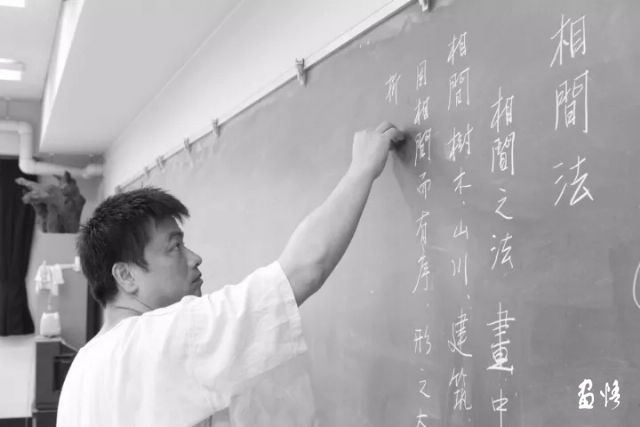 相間法
相間之法 畫中
相間樹木、山川、建筑
因相間而有序，形之大
折
畫悟